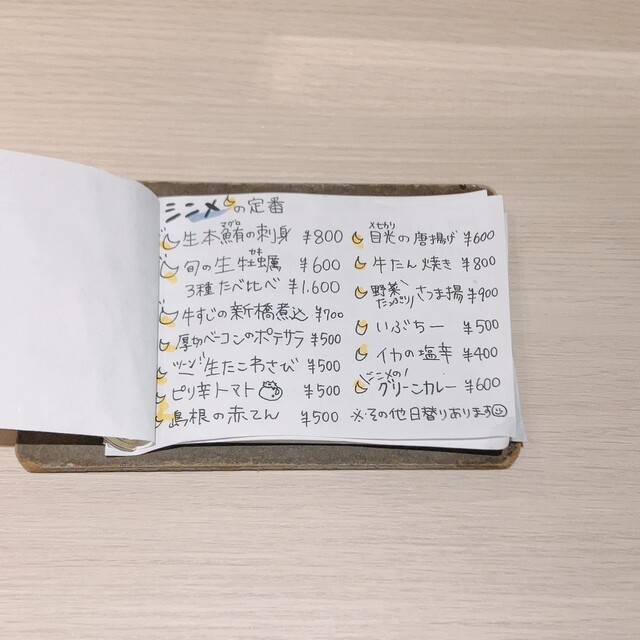 シンメの定番
生本鮪の刺身 ¥800
マグロ
旬の生牡蠣 ¥600
カキ
3種たべ比べ ¥1.600
牛すじの新橋煮込 ¥700
厚切ベーコンのポテサラ ¥500
ツーン!生たこわさび ¥500
ピリ辛トマト ¥500
島根の赤てん ¥500
メヒカリ
目光の唐揚げ ¥600
牛たん焼き ¥800
野菜たっぷりさつま揚 ¥900
いぶちー ¥500
イカの塩辛 ¥400
シンメの!
グリーンカレー ¥600
※その他日替りあります